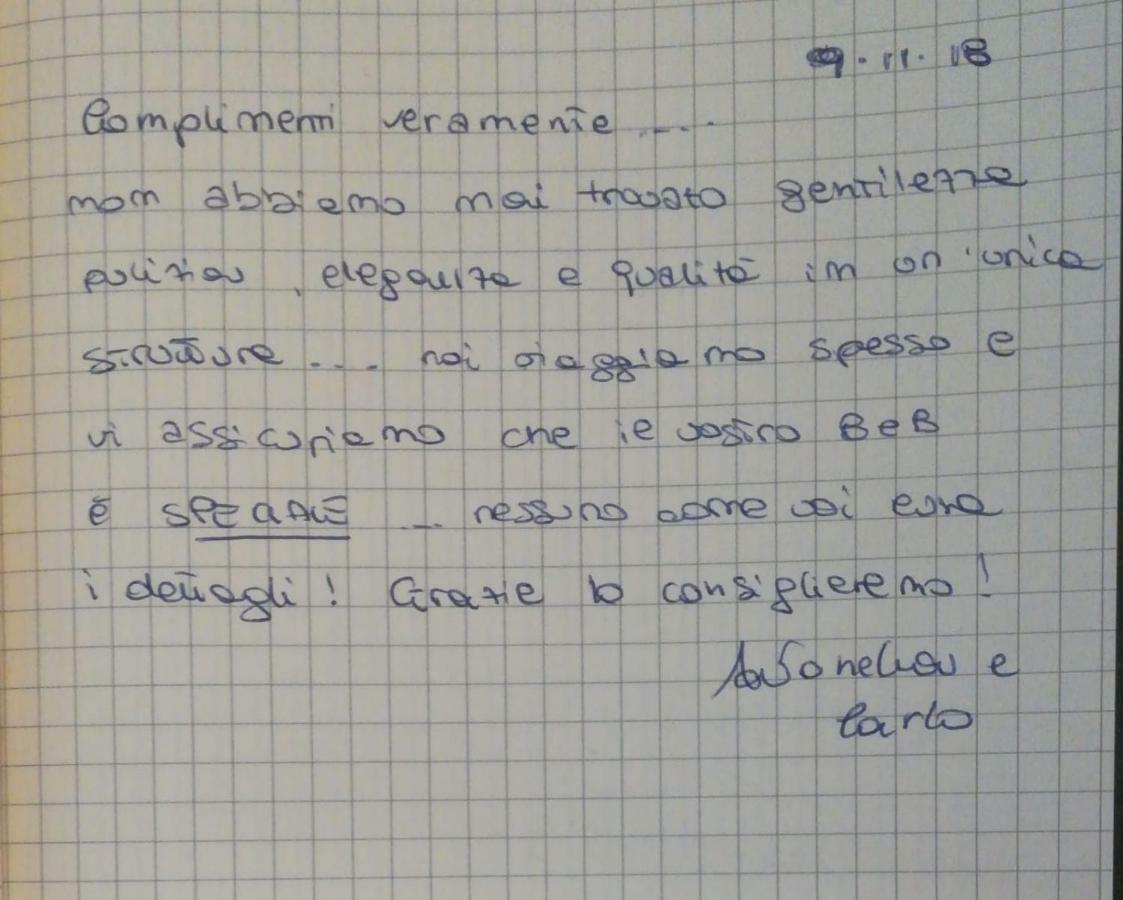 9.11.18
Complimenti veramente ....
non abbiamo mai trovato gentilezza
pulizia, eleganza e qualità in un'unica
struttura .... noi viaggiamo spesso e
vi assicuriamo che il vostro BeB
è SPECIALE ... nessuno come voi cura
i dettagli! Grazie lo consiglieremo!
Antonella e
Carlo